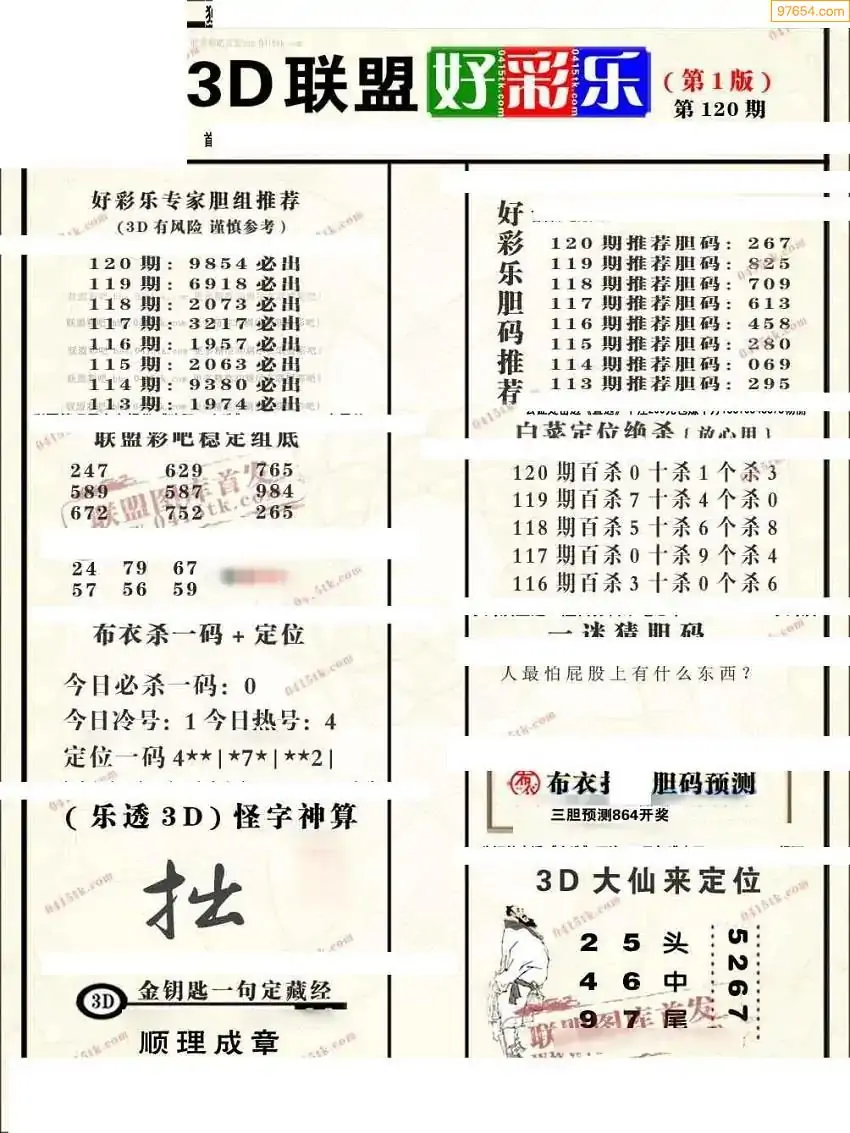 97654.com
3D联盟好彩乐
(第1版)
第120期
好彩乐专家胆组推荐
(3D有风险 谨慎参考)
120期: 9854必出
119期: 6918必出
118期: 2073必出
117期: 3217必出
116期: 1957必出
115期: 2063必出
114期: 9380必出
113期: 1974必出
联盟彩吧稳定组底
247 629 765
589 587 984
672 752 265
24 79 67
57 56 59
布衣杀一码+定位
今日必杀一码: 0
今日冷号: 1 今日热号: 4
定位一码 4**|*7*|**2|
(乐透3D)怪字神算
拙
3D 金钥匙一句定藏经
顺理成章
好彩乐胆码推荐
120期推荐胆码: 267
119期推荐胆码: 825
118期推荐胆码: 709
117期推荐胆码: 613
116期推荐胆码: 458
115期推荐胆码: 280
114期推荐胆码: 069
113期推荐胆码: 295
白菜定位绝杀(放心用)
120期百杀0十杀1个杀3
119期百杀7十杀4个杀0
118期百杀5十杀6个杀8
117期百杀0十杀9个杀4
116期百杀3十杀0个杀6
一谜猜胆码
人最怕屁股上有什么东西?
布衣
胆码预测
三胆预测864开奖
3D大仙来定位
2 5 头
4 6 中
9 7 尾
5267
联盟图库首发
0415tk.com